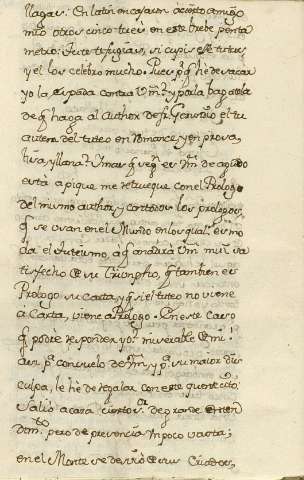 llagas: En latin encajaron a cierto amigo
mio otros cinco tues en este breve penta
metro: Tu te tu fugias, si cupis esse tutus
y el los celebro mucho. Pues pq he de sacar
yo la espada contra Vm. y por la bagatela
de q haga al Author de fr Gerundio el tu
autem del tuteo en Romance, y en prosa,
lisa y llana? Y mas que segn es Vm. de agudo
está a pique me retuerque con el Prologo
del mismo author, y con todos los prologos,
q se usan en el Mundo en los qual. es mo
da el tutearnos, a q añadirá Vm. mui sa
tisfecho de su Triumpho, q tambien es
Prologo su carta, y q si el tuteo no viene
a Carta, viene a Prologo. En este caso
q podré responder yo? miserable de mi!
aun pa consuelo de Vm. y pa su maior dis
culpa, le he de regalar con este quentecito:
Salio a caza cierto Sr. de grande enten
dimto. pero de prevencion un poco vasta;
en el Monte se desvió de sus Criados,